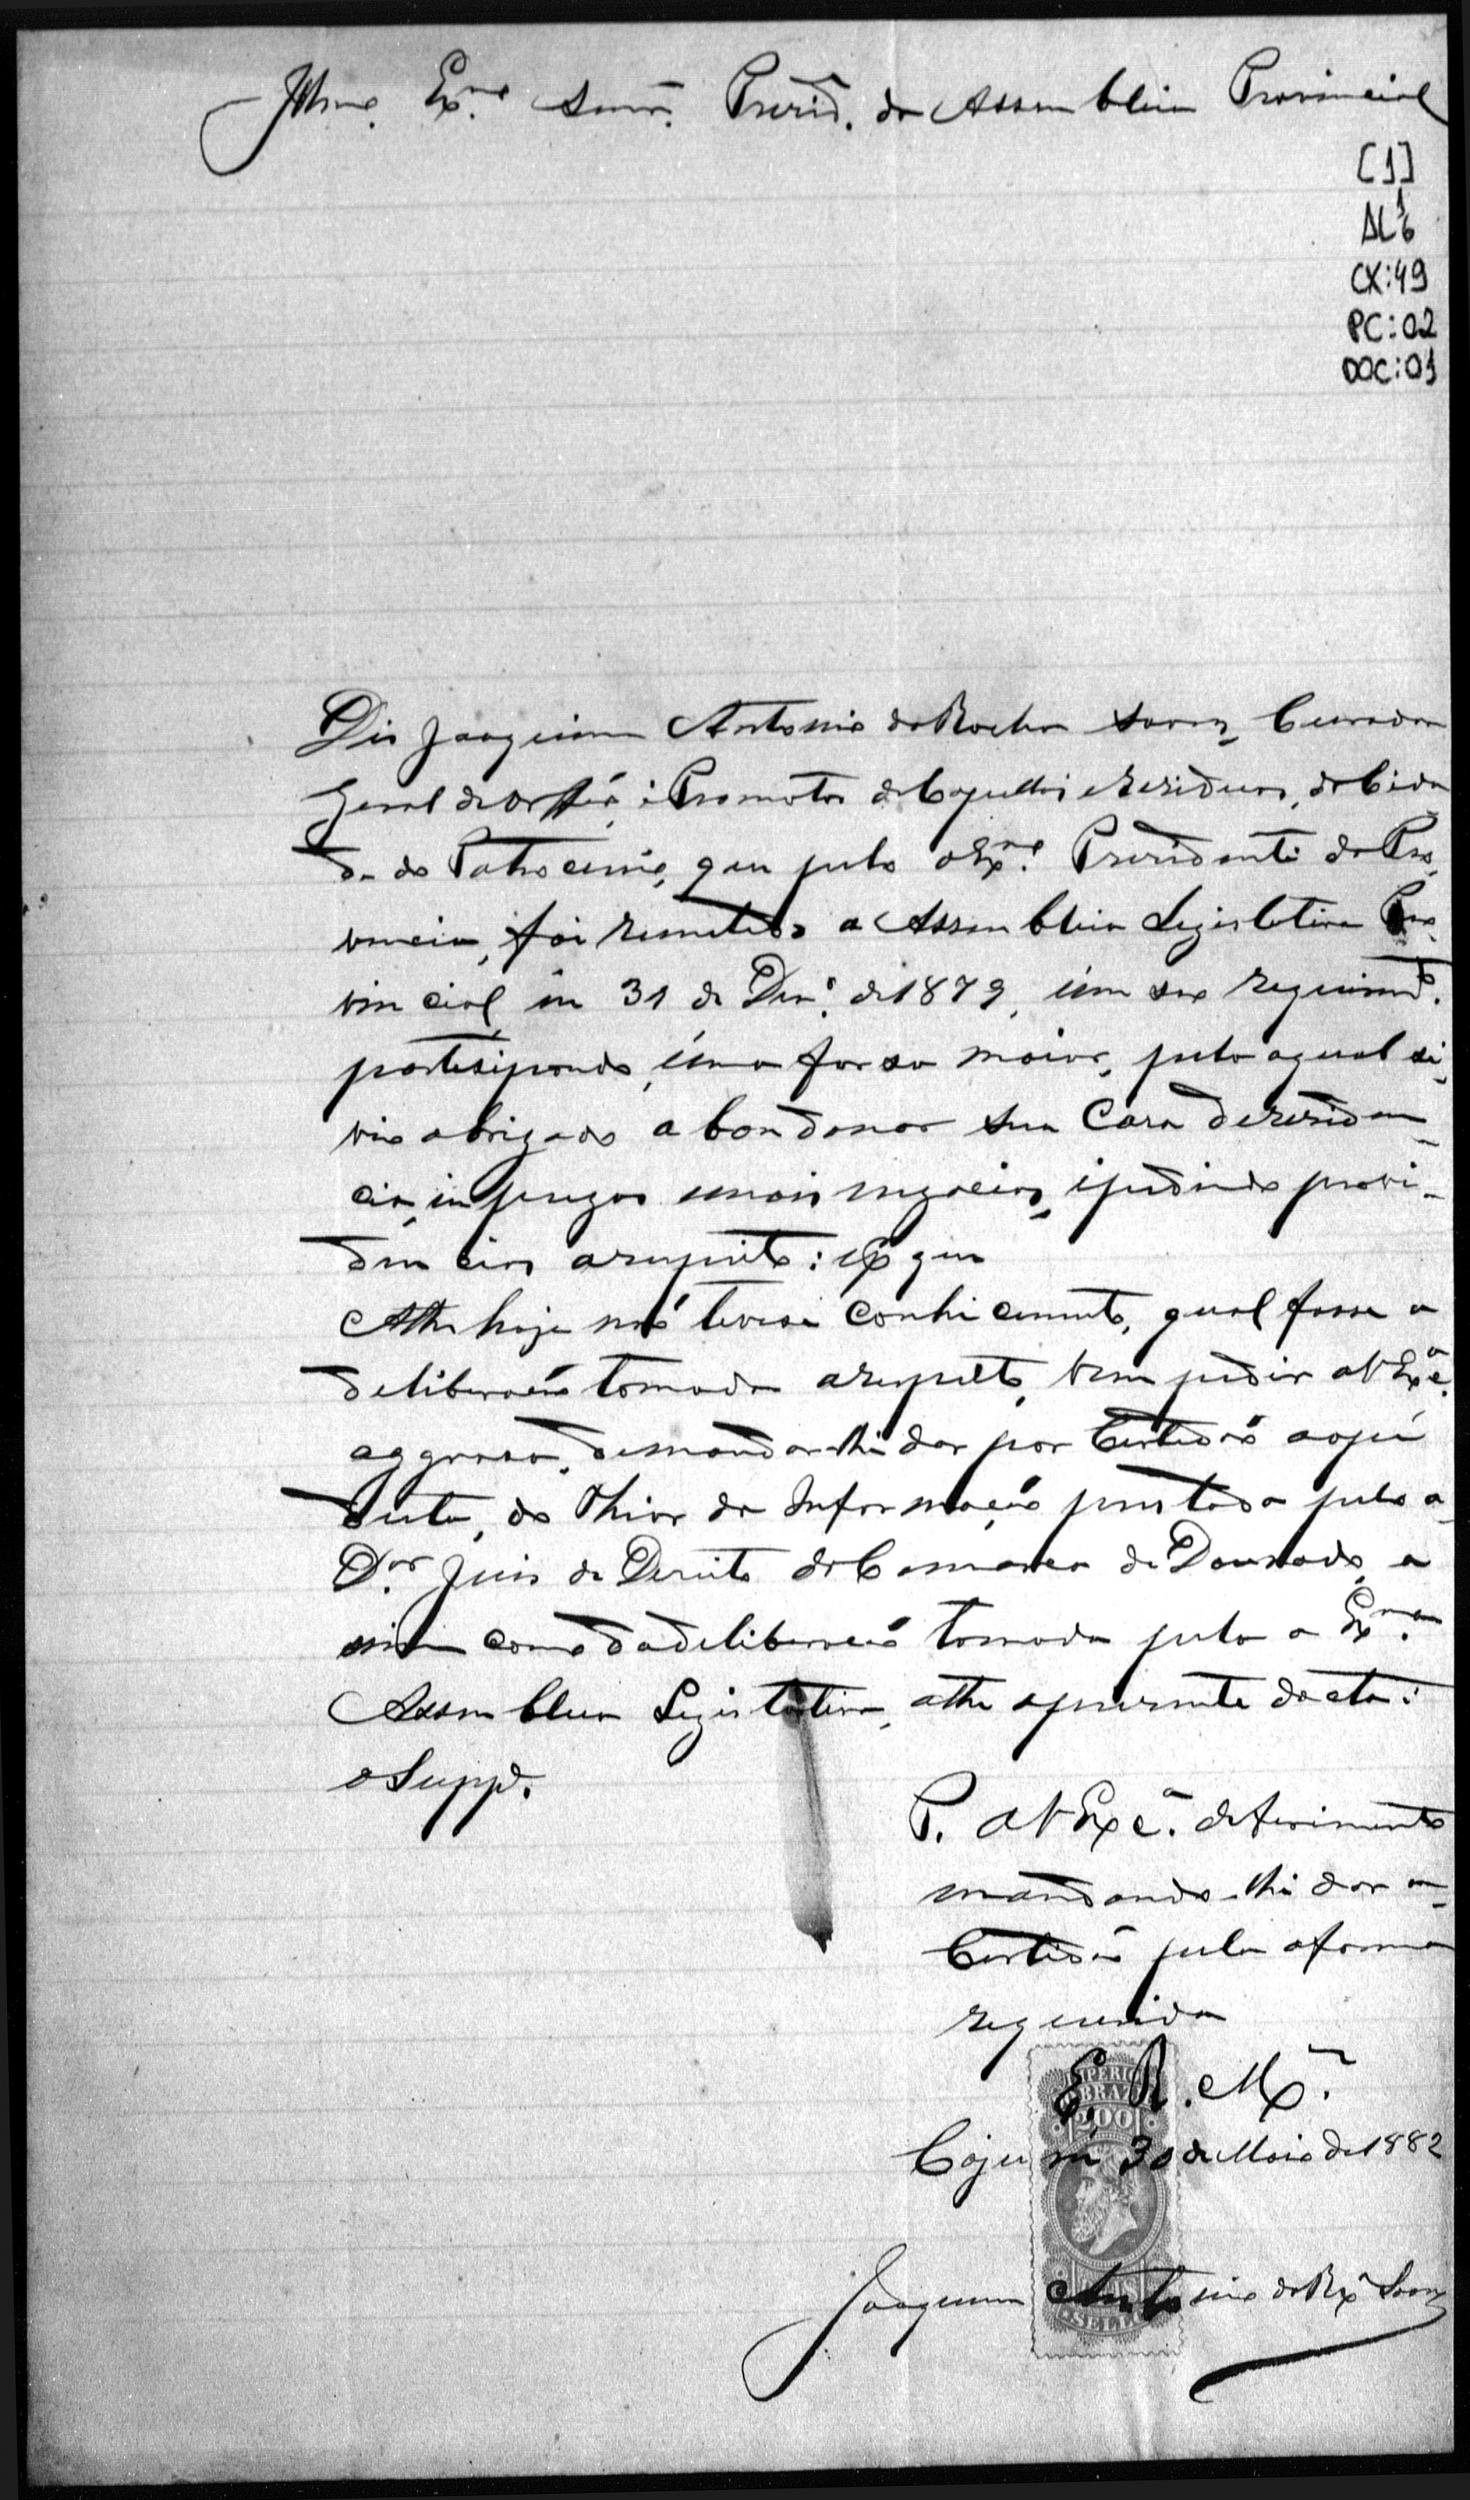 Illmo. Exmo. Snnr. Presid. da Assemblea Provincial
[1]
AL 1 6
CX:49
PC:02
DOC:01
Dis Joaquim Antonio da Rocha Soares, Curador
Geral de Orffãos, i Promotor de Capellas e Residuos, da Cida
de do Patrocinio, que pelo o Exmo. Presidente da Pro,
vincia, foi remetido a Assemblea Legislativa Pro,
vincial, in 31 de Dezo. de 1879, úm seo requerimto.
partesipando, úma forsa maior, pela a qual si,
vio obrigado abandonar sua Caza de residen
cia, impregos e mais negocios, i pedindo provi-
dencias a respeito: Ex que
Athe hoje não tevese conhicemento, qual fosse a
deliberação tomada a respeito, vem pedir a V Exca.
a graça, de mandar-lhi dar por Certidão ao pé
desta, do Thior da Informação prestada pelo o
Dor. Juis de Direito da Comarca de Dourados, a
sim como da deliberação tomada pela a Exma.
Assemblea Legislativa, athe a presente dacta:
o Suppe.
P. a V Exca. deferimento
mandando-lhi dar a
Certidão pela a forma
requerida
E. R. Mce.
IMPERIO
BRAZIL
200
REIS
SELLO
Cajuru 30 de Maio de 1882
Joaquim Antonio da Rxa Soares